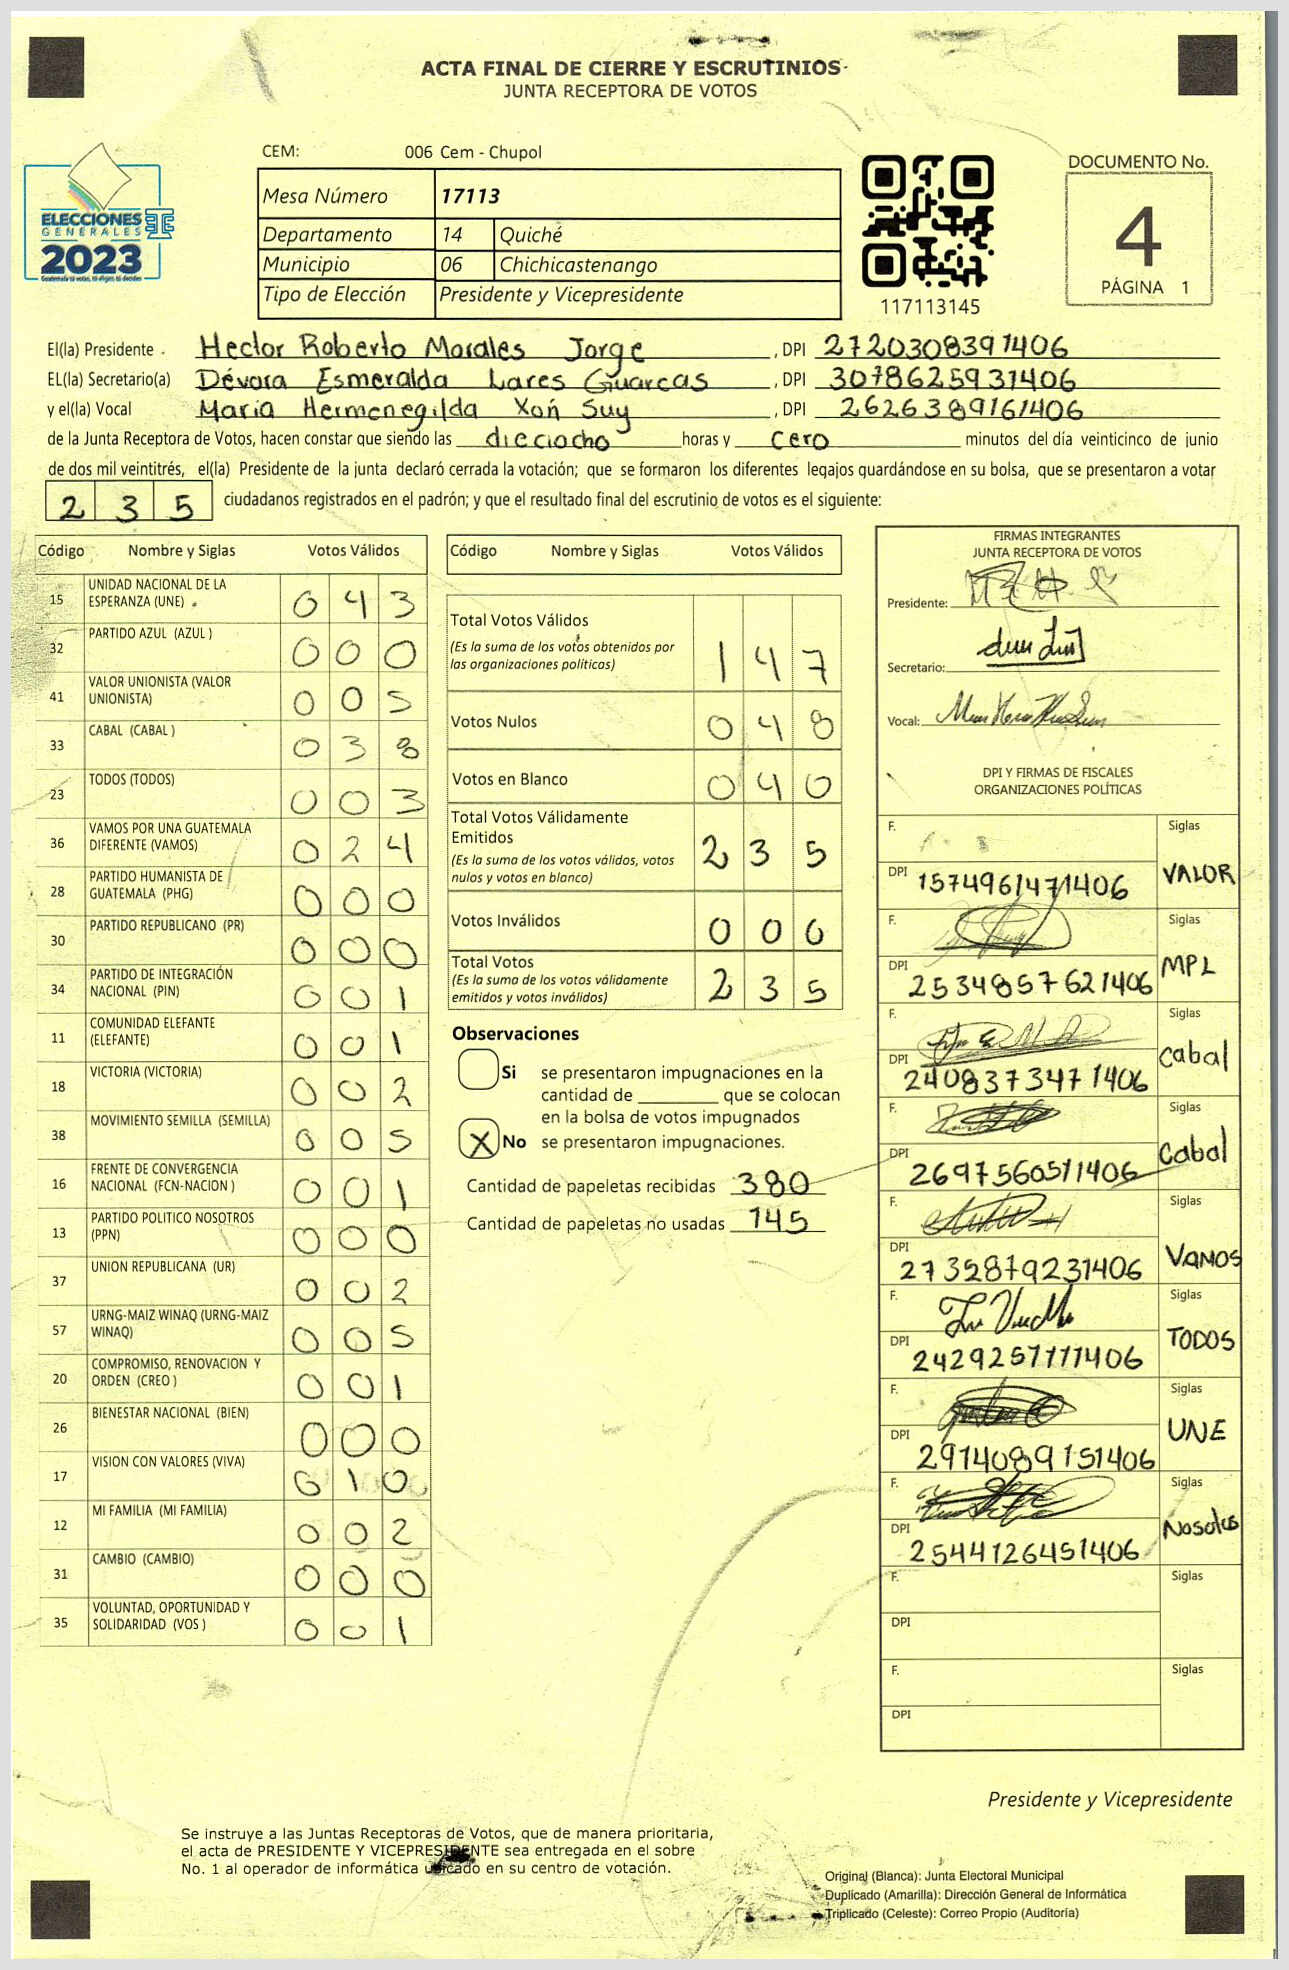 ACTA FINAL DE CIERRE Y ESCRUTINIOS
JUNTA RECEPTORA DE VOTOS
ELECCIONES
GENERALES
2023
CEM: 006 Cem - Chupol
Mesa Número 17113
Departamento 14 Quiché
Municipio 06 Chichicastenango
Tipo de Elección Presidente y Vicepresidente
117113145
DOCUMENTO No.
4
PÁGINA 1
El(la) Presidente Hector Roberto Morales Jorge, DPI 2720308391406
EL(la) Secretario(a) Dévora Esmeralda Lares Guarcas, DPI 3078625931406
y el(la) Vocal Maria Hermenegilda Xon Suy, DPI 2626389161406
de la Junta Receptora de Votos, hacen constar que siendo las dieciocho horas y cero minutos del día veinticinco de junio
de dos mil veintitrés, el(la) Presidente de la junta declaró cerrada la votación; que se formaron los diferentes legajos quardándose en su bolsa, que se presentaron a votar
235 ciudadanos registrados en el padrón; y que el resultado final del escrutinio de votos es el siguiente:
Código Nombre y Siglas Votos Válidos
15 UNIDAD NACIONAL DE LA ESPERANZA (UNE) 043
32 PARTIDO AZUL (AZUL ) 000
41 VALOR UNIONISTA (VALOR UNIONISTA) 005
33 CABAL (CABAL ) 038
23 TODOS (TODOS) 003
36 VAMOS POR UNA GUATEMALA DIFERENTE (VAMOS) 024
28 PARTIDO HUMANISTA DE GUATEMALA (PHG) 000
30 PARTIDO REPUBLICANO (PR) 000
34 PARTIDO DE INTEGRACIÓN NACIONAL (PIN) 001
11 COMUNIDAD ELEFANTE (ELEFANTE) 001
18 VICTORIA (VICTORIA) 002
38 MOVIMIENTO SEMILLA (SEMILLA) 005
16 FRENTE DE CONVERGENCIA NACIONAL (FCN-NACION ) 001
13 PARTIDO POLITICO NOSOTROS (PPN) 000
37 UNION REPUBLICANA (UR) 002
57 URNG-MAIZ WINAQ (URNG-MAIZ WINAQ) 005
20 COMPROMISO, RENOVACION Y ORDEN (CREO ) 001
26 BIENESTAR NACIONAL (BIEN) 000
17 VISION CON VALORES (VIVA) 010
12 MI FAMILIA (MI FAMILIA) 002
31 CAMBIO (CAMBIO) 000
35 VOLUNTAD, OPORTUNIDAD Y SOLIDARIDAD (VOS ) 001
Código Nombre y Siglas Votos Válidos
Total Votos Válidos 147
(Es la suma de los votos obtenidos por
las organizaciones políticas)
Votos Nulos 048
Votos en Blanco 040
Total Votos Válidamente
Emitidos 235
(Es la suma de los votos válidos, votos
nulos y votos en blanco)
Votos Inválidos 000
Total Votos 235
(Es la suma de los votos válidamente
emitidos y votos inválidos)
Observaciones
Si se presentaron impugnaciones en la
cantidad de ________ que se colocan
en la bolsa de votos impugnados
X No se presentaron impugnaciones.
Cantidad de papeletas recibidas 380
Cantidad de papeletas no usadas 145
FIRMAS INTEGRANTES
JUNTA RECEPTORA DE VOTOS
Presidente:
Secretario:
Vocal:
DPI Y FIRMAS DE FISCALES
ORGANIZACIONES POLÍTICAS
F. Siglas
DPI 1574961471406 VALOR
F. Siglas
DPI 2534857621406 MPL
F. Siglas
DPI 2408373471406 Cabal
F. Siglas
DPI 2697560511406 Cabal
F. Siglas
DPI 2732879231406 VAMOS
F. Siglas
DPI 2429257111406 TODOS
F. Siglas
DPI 2914089151406 UNE
F. Siglas
DPI 2544126451406 Nosotros
F. Siglas
DPI
F. Siglas
DPI
Presidente y Vicepresidente
Se instruye a las Juntas Receptoras de Votos, que de manera prioritaria,
el acta de PRESIDENTE Y VICEPRESIDENTE sea entregada en el sobre
No. 1 al operador de informática ubicado en su centro de votación.
Original (Blanca): Junta Electoral Municipal
Duplicado (Amarilla): Dirección General de Informática
Triplicado (Celeste): Correo Propio (Auditoría)